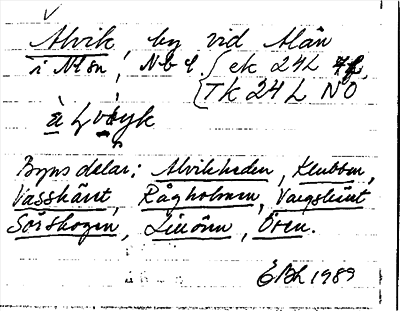 Alvik, by vid Alån
i Nlsn, Nbl { ek 24L 4f,
{ TK 24 L NO
Byns delar; Alvikheden, Klubben,
Vasskäret, Rågholmen, Vargskäret
Sörskogen, Lillön, Ören.
EBL 1989